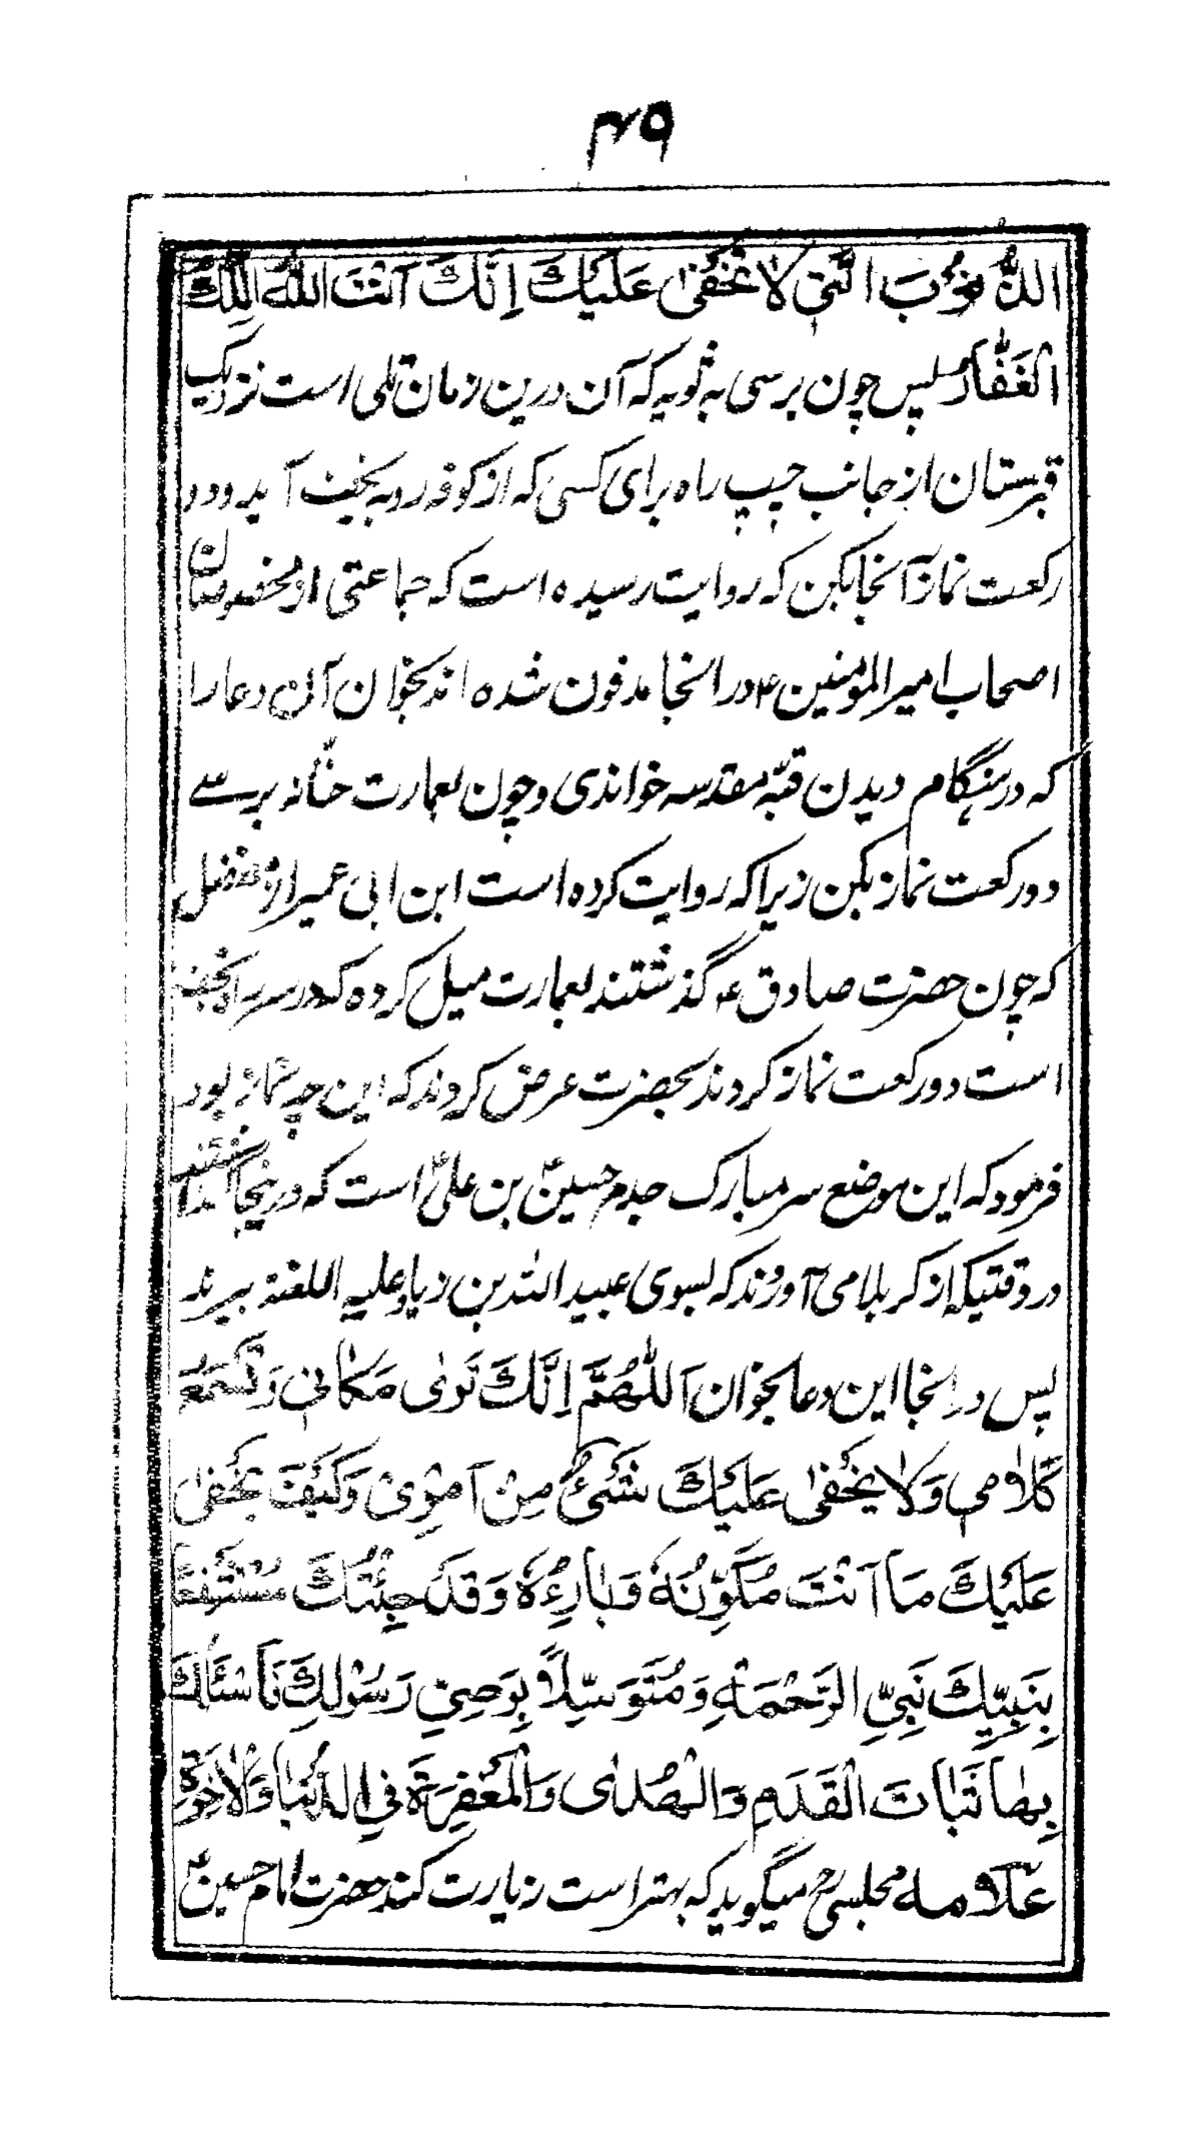 ۴۹
الذُّنُوْبَ الَّتِیْ لَا تَخْفٰی عَلَیْكَ اِنَّكَ اَنْتَ اللهُ الْمَلِكُ
الْغَفَّارُ پس چون برسی به ثویه که آن درین زمان تلی است نزدیک
قبرستان از جانب چپ راه برای کسی که از کوفه رو به نجف آید و دو
رکعت نماز آنجا بکن که روایت رسیده است که جماعتی از مخصوصان
اصحاب امیرالمؤمنین ع در انجا مدفون شده اند بخوان آن دعا را
که در هنگام دیدن قبّه مقدسه خواندی و چون بعمارت حنّانه برسے
دو رکعت نماز بکن زیرا که روایت کرده است ابن ابی عمیر از مفضل
که چون حضرت صادق ع گذشتند بعمارت میل کرده که در سر راه نجف
است دو رکعت نماز کردند بحضرت عرض کردند که این چه نماز بود
فرمود که این موضع سر مبارک جدم حسینؑ بن علیؑ است که درینجا گذاشتند
در وقتیکه از کربلا می آوردند که بسوی عبید الله بن زیاد علیه اللعنة ببرند
پس در اینجا این دعا بخوان اَللّٰهُمَّ اِنَّكَ تَرٰی مَکَانِیْ وَتَسْمَعُ
کَلَامِیْ وَلَا یَخْفٰی عَلَیْكَ شَیْءٌ مِنْ اَمْرِیْ وَکَیْفَ یَخْفٰی
عَلَیْكَ مَا اَنْتَ مُکَوِّنُهٗ وَبَارِءُهٗ وَقَدْ جِئْتُكَ مُسْتَشْفِعًا
بِنَبِیِّكَ نَبِیِّ الرَّحْمَةِ وَمُتَوَسِّلًا بِوَصِیِّ رَسُوْلِكَ فَاَسْئَلُكَ
بِهِمَا ثَبَاتَ الْقَدَمِ وَالْهُدٰی وَالْمَغْفِرَةَ فِی الدُّنْیَا وَالْاٰخِرَةِ
علّامه مجلسیؒ میگوید که بهتر است زیارت کند حضرت امام حسینؑ